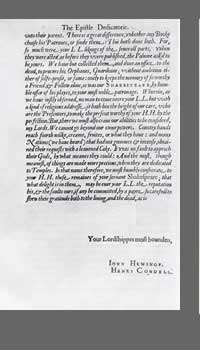 The Epistle Dedicatorie.
unto their parent. There is a great difference, whether any Booke
choose his Patrones, or finde them: This hath done both. For,
so much were your L L. likings of the severall parts, when
they were acted, as before they were published, the Volume ask'd to
be yours. We have but collected them, and done an office to the
dead, to procure his Orphanes, Guardians; without ambition ei-
ther of selfe-profit, or fame: onely to keepe the memory of so worthy
a Friend, & Fellow alive, as was our SHAKESPEARE, by hum-
ble offer of his playes, to your most noble patronage. Wherein, as
we have justly observed, no man to come neere your L.L. but with
a kind of religious addresse; it hath bin the height of our care, who
are the Presenters, to make the present worthy of your H.H. by the
perfection. But, there we must also crave our abilities to be considerd,
my Lords. We cannot go beyond our owne powers. Country hands
reach foorth milke, creame, fruites, or what they have: and many
Nations (we have heard) that had not gummes & incense, obtai-
ned their requests with a leavened Cake. It was no fault to approch
their Gods, by what meanes they could: And the most, though
meanest, of things are made more precious, when they are dedicated
to Temples. In that name therefore, we most humbly consecrate to
your H.H. these remaines of your servant Shakespeare; that
what delight is in them, may be ever your L.L. the reputation
his, & the faults ours, if any be committed, by a payre so carefull to
shew their gratitude both to the living, and the dead, as is
Your Lordshippes most bounden,
IOHN HEMINGE.
HENRY CONDELL.